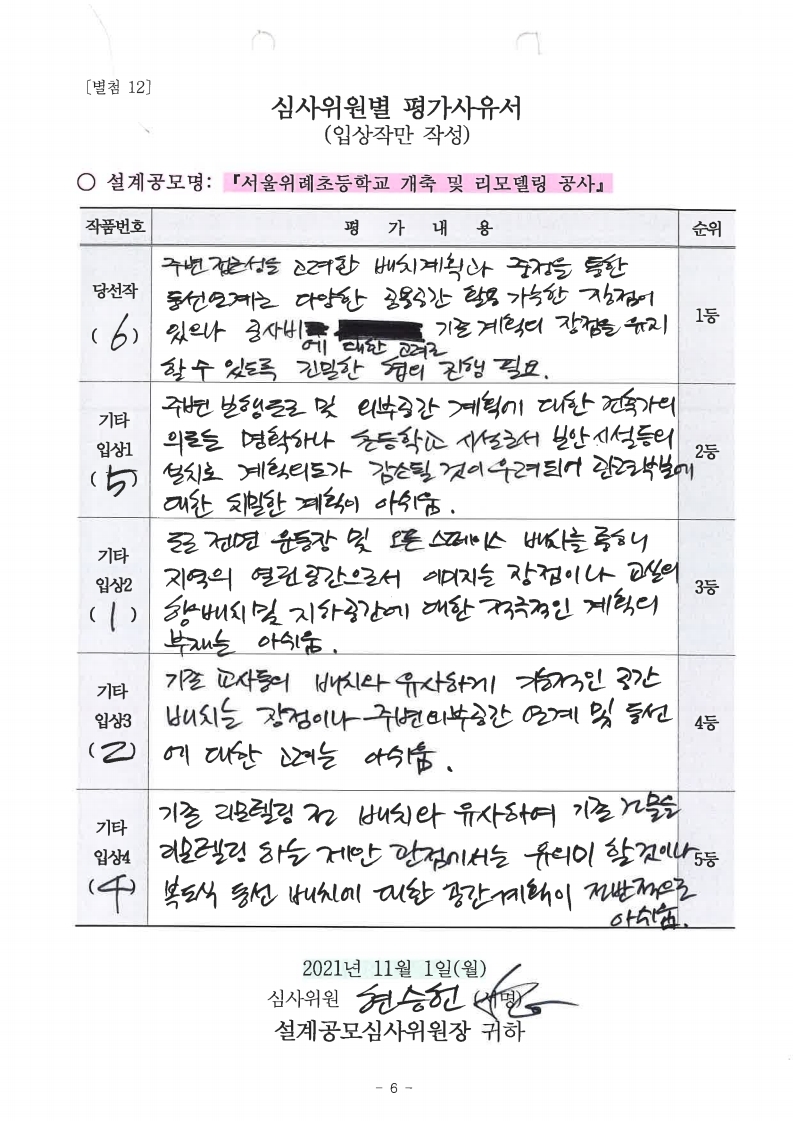 [별첨 12]
심사위원별 평가사유서
(입상작만 작성)
○ 설계공모명: 『서울위례초등학교 개축 및 리모델링 공사』
작품번호 평 가 내 용 순위
당선작
( 6 )
주변 접근성을 고려한 배치계획과 중정을 통한
동선연계는 다양한 공용공간 활용 가능한 장점이
있으나 공사비에 대한 고려로 기존 계획의 장점을 유지
할 수 있도록 긴밀한 협의 진행 필요.
1등
기타
입상1
( 5 )
주변 보행동로 및 외부공간 계획에 대한 건축가의
의도는 명확하나 초등학교 시설로서 보안시설등의
설치로 계획의도가 감소될 것이 우려되어 관련부분에
대한 치밀한 계획이 아쉬움.
2등
기타
입상2
( 1 )
도로 전면 운동장 및 오픈 스페이스 배치를 통해
지역의 열린공간으로서 이미지는 장점이나 교실의
향배치 및 지하공간에 대한 적극적인 계획의
부재는 아쉬움.
3등
기타
입상3
( 2 )
기존 교사동의 배치와 유사하게 기하적인 공간
배치는 장점이나 주변 외부공간 연계 및 동선
에 대한 고려는 아쉬움.
4등
기타
입상4
( 4 )
기존 리모델링 전 배치와 유사하여 기존 건물을
리모델링 하는 제안 관점에서는 유의미 할것이나
복도식 동선 배치에 대한 공간계획이 전반적으로
아쉬움.
5등
2021년 11월 1일(월)
심사위원 현승헌 (서명)
설계공모심사위원장 귀하
- 6 -